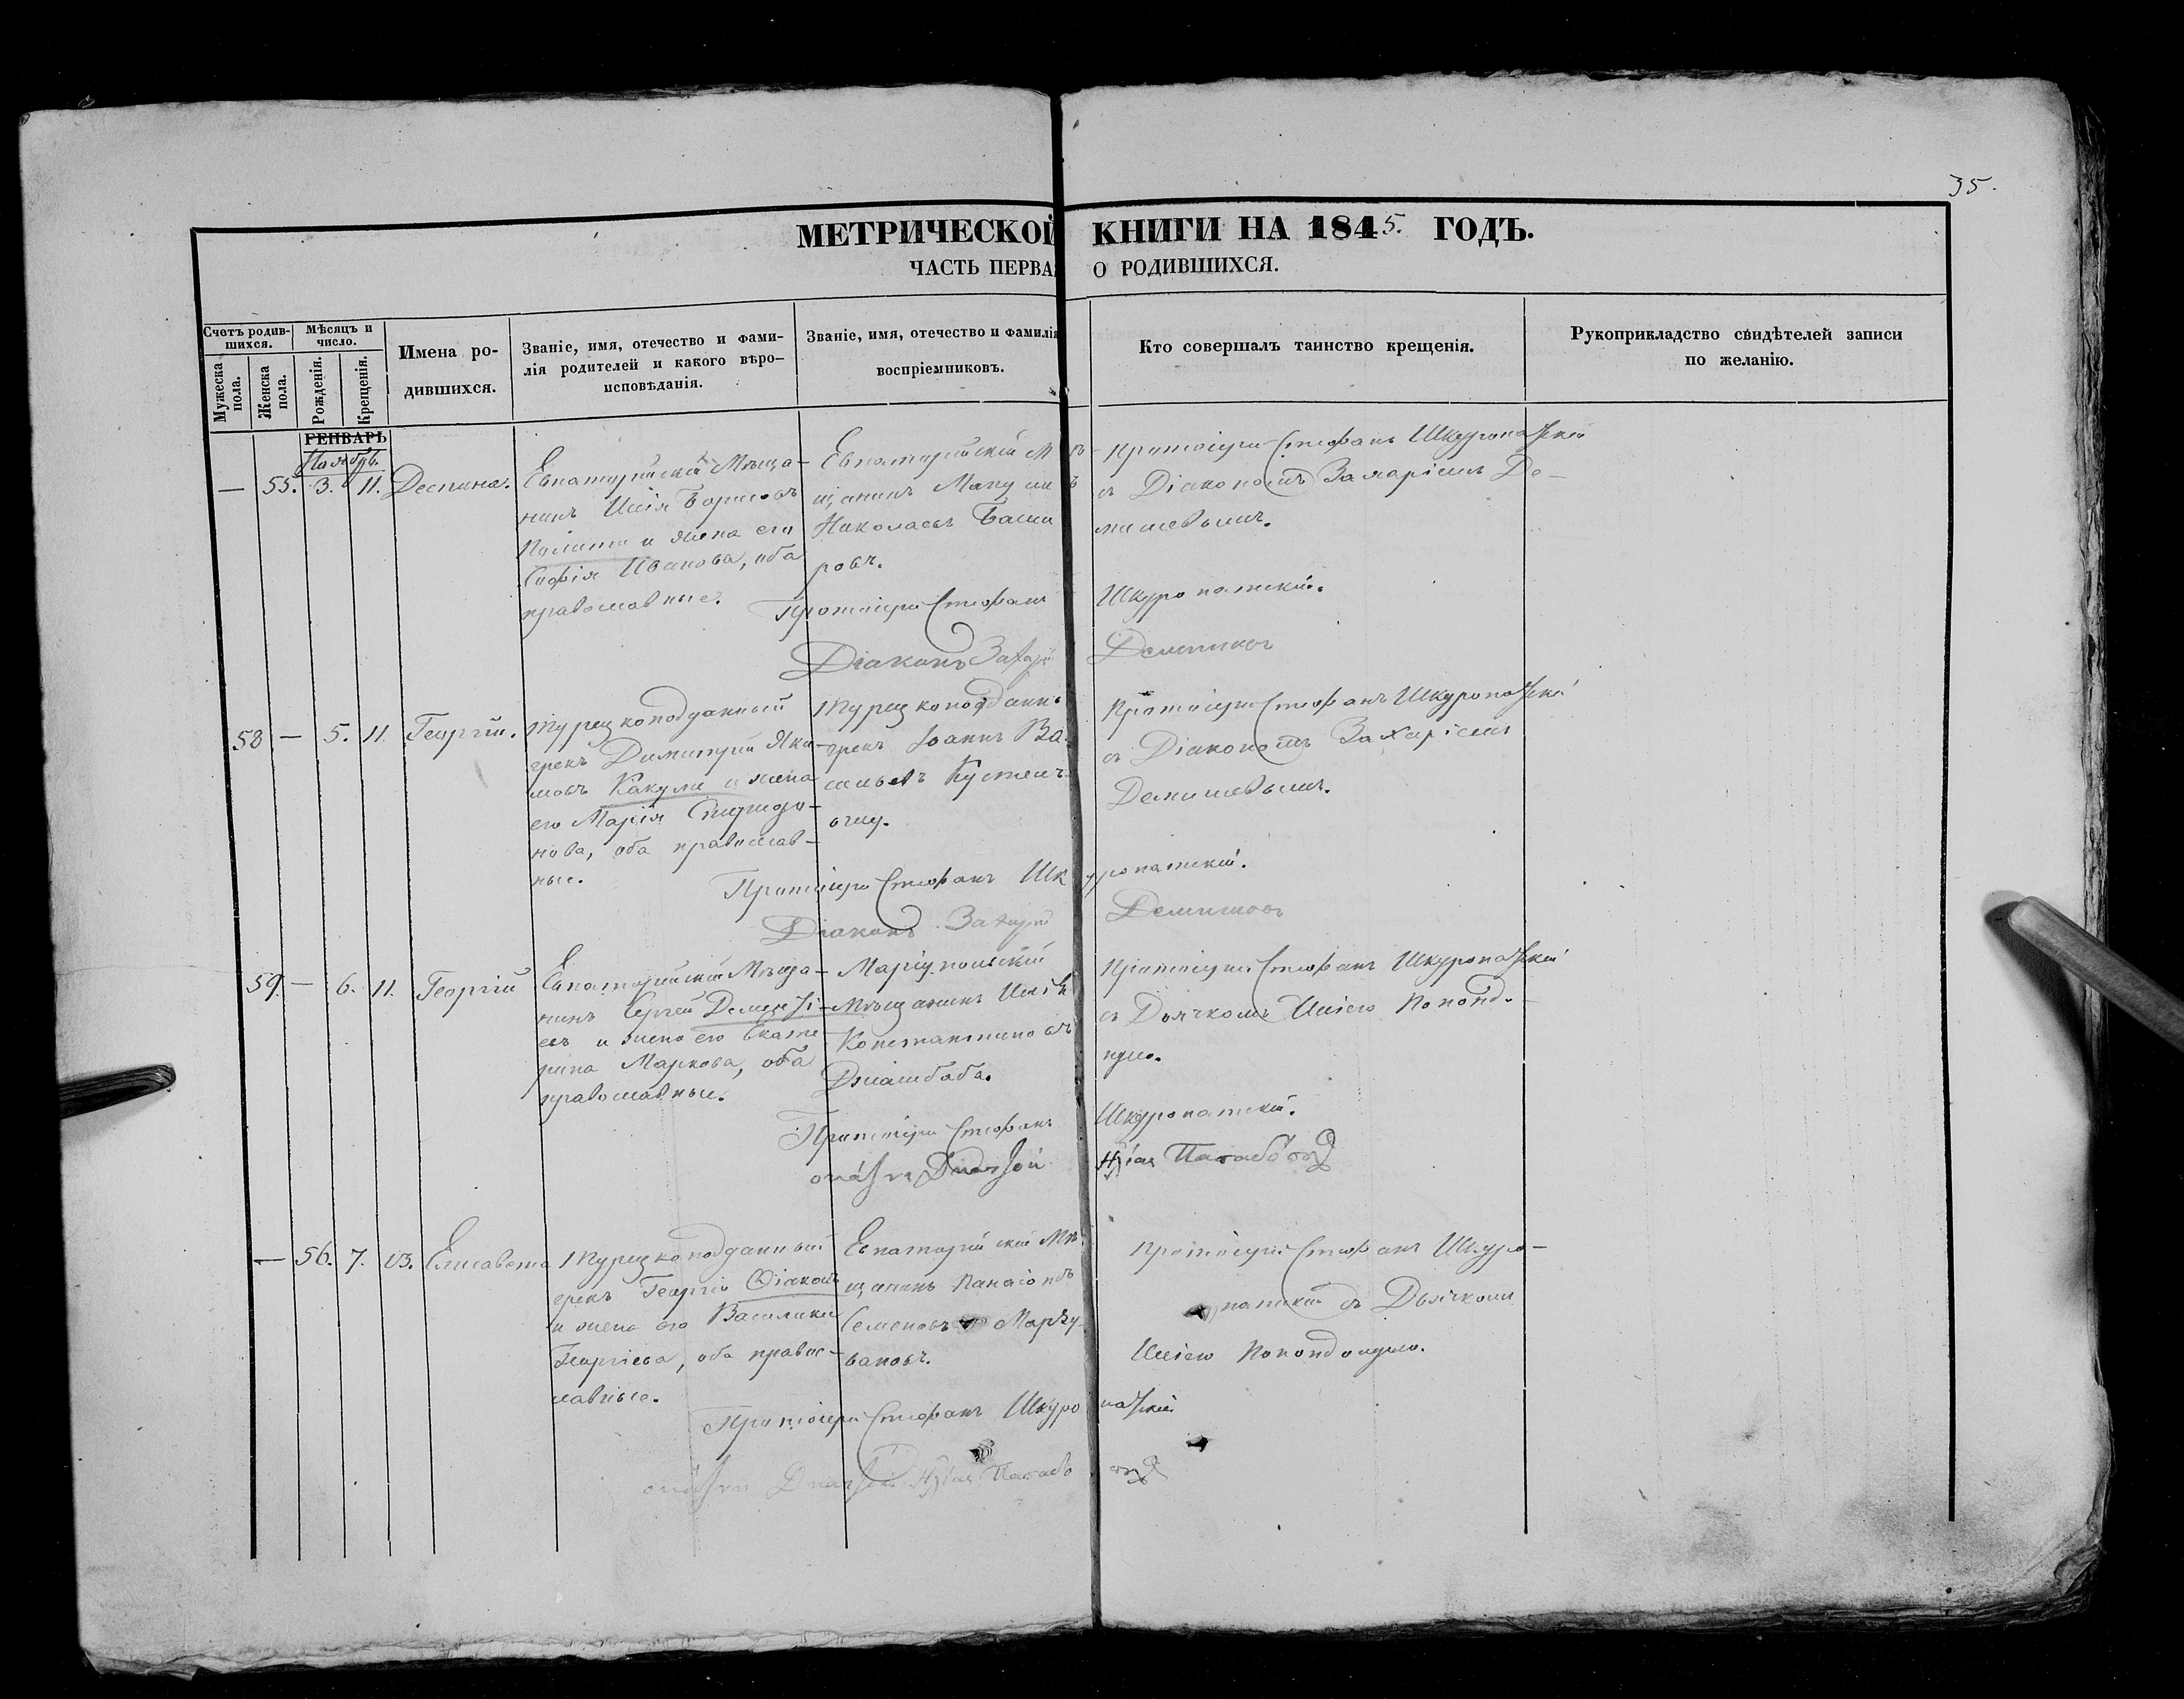 35.
МЕТРИЧЕСКОЙ КНИГИ НА 1845. ГОДЪ.
ЧАСТЬ ПЕРВАЯ О РОДИВШИХСЯ.
Счетъ родив-
шихся.
Мужеска пола.
Женска пола.
Мѣсяцъ и
число.
Рожденія.
Крещенія.
Имена ро-
дившихся.
Званіе, имя, отечество и фами-
лія родителей и какого вѣро-
исповѣданія.
Званіе, имя, отечество и фамилія
воспріемниковъ.
Кто совершалъ таинство крещенія.
Рукоприкладство свидѣтелей записи
по желанію.
ГЕНВАРЬ
Ноябрь.
— 55. 3. 11. Деспина.
Евпаторійскій Мѣща-
нинъ Илія Борисовъ
и жена его
Софія Иванова, оба
православные.
Евпаторійскій Мѣ-
щанинъ
Николаевъ
ровъ.
Протоіерей Стефанъ Шкуропатскій
съ Діакономъ Захаріемъ Де-
мишевымъ.
Протоіерей Стефанъ Шкуропатскій.
Діаконъ Захарій Демишевъ
58 — 5. 11. Георгій.
Турецкоподданный
грекъ Димитрій Яки-
мовъ Какули и жена
его Марія Спиридо-
нова, оба православ-
ные.
Турецкоподданный
грекъ Іоаннъ Ва-
сильевъ
Протоіерей Стефанъ Шкуропатскій
съ Діакономъ Захаріемъ
Демишевымъ.
Протоіерей Стефанъ Шкуропатскій.
Діаконъ Захарій Демишевъ
59. — 6. 11. Георгій
Евпаторійскій Мѣща-
нинъ Сергей
евъ и жена его Екате-
рина Маркова, оба
православные.
Маріупольскій
Мѣщанинъ Илія
Константиновъ
Джамбаба.
Протоіерей Стефанъ Шкуропатскій
съ Дьячкомъ Иліею
Протоіерей Стефанъ Шкуропатскій.
— 56. 7. 13. Елисавета
Турецкоподданный
грекъ Георгій
и жена его Василики
Георгіева, оба правос-
лавные.
Евпаторійскій Мѣ-
щанинъ
Семеновъ
Протоіерей Стефанъ Шкуро-
патскій съ Дьячкомъ
Иліею
Протоіерей Стефанъ Шкуропатскій